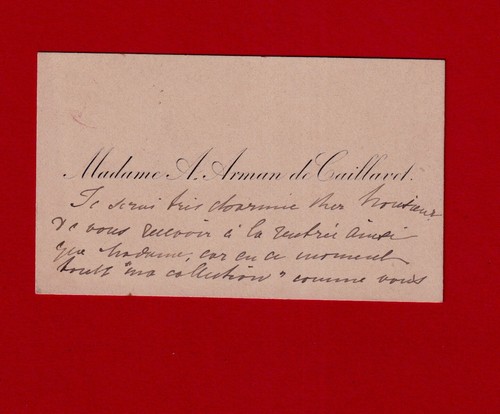 Madame A. Arman de Caillavet.
Je serai très charmée cher Monsieur
de vous recevoir à la rentrée ainsi
que Madame, car en ce moment
toute "ma collection" comme vous